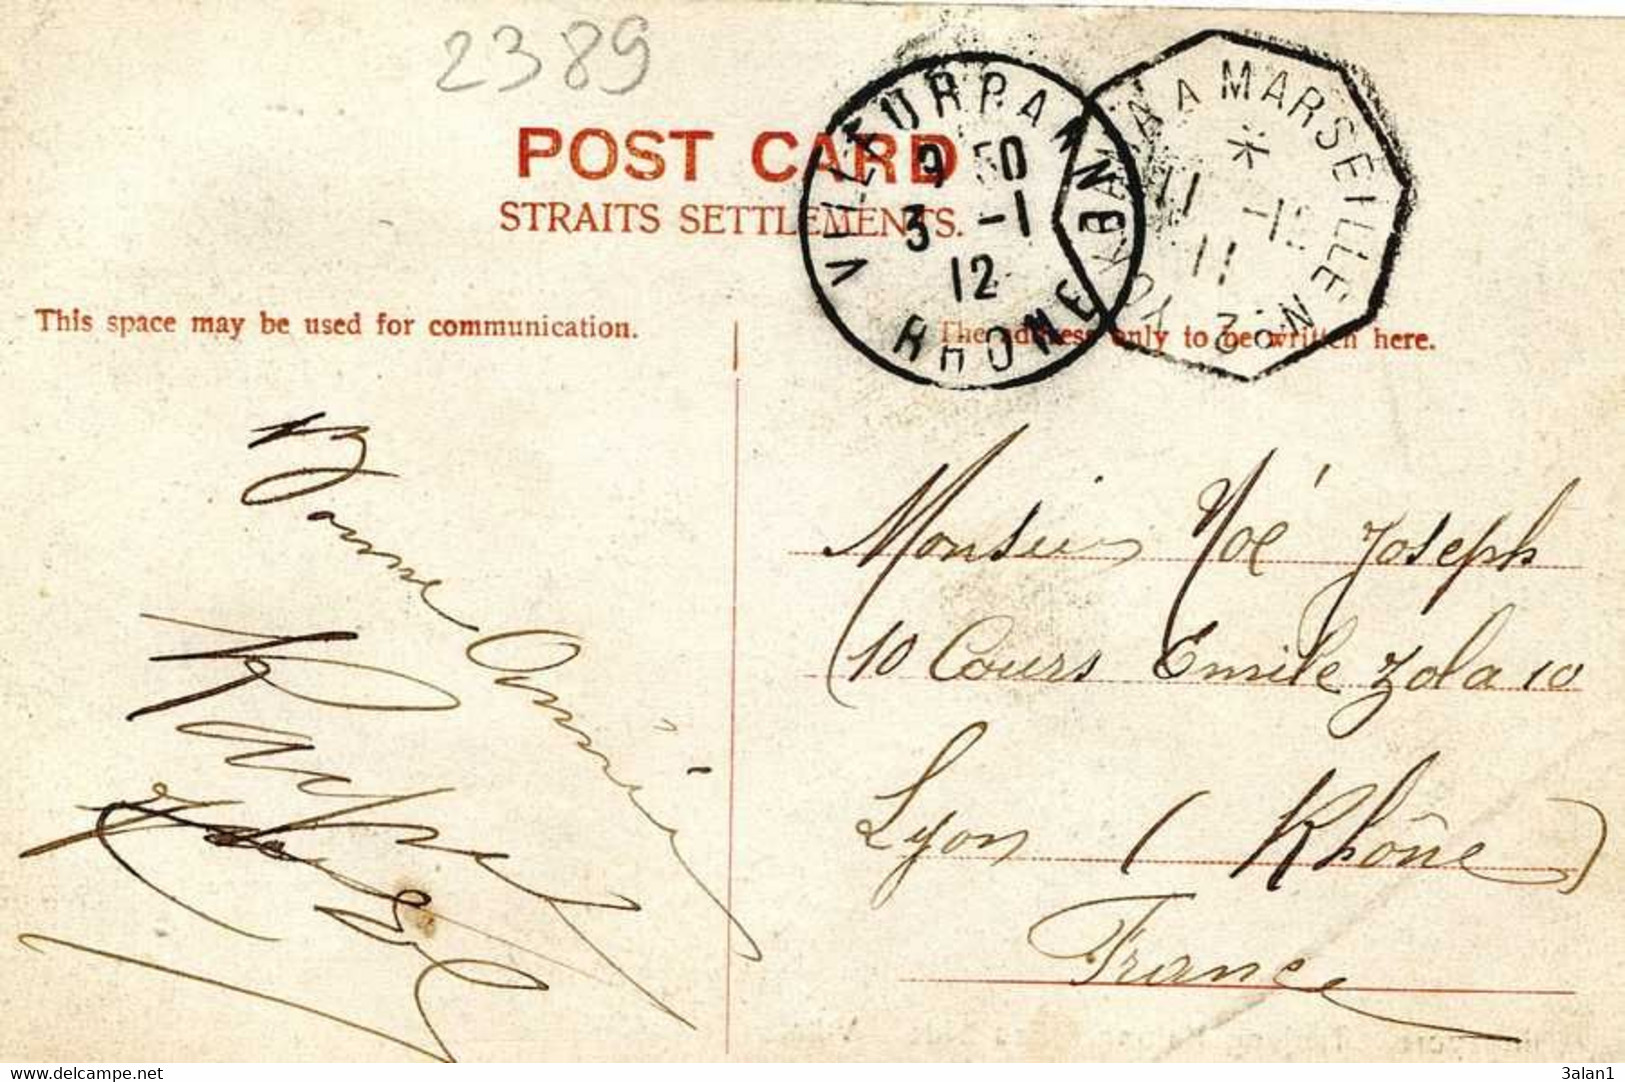 2389
POST CARD
STRAITS SETTLEMENTS.
VILLEURBANNE
9 50
3 -1
12
RHONE
YOKOHAMA A MARSEILLE
*
11
11
This space may be used for communication.
The address only to be written here.
Bonne Année
Monsieur Noé Joseph
10 Cours Emile Zola 10
Lyon ( Rhône )
France
https://www.delcampe.net
3alan1